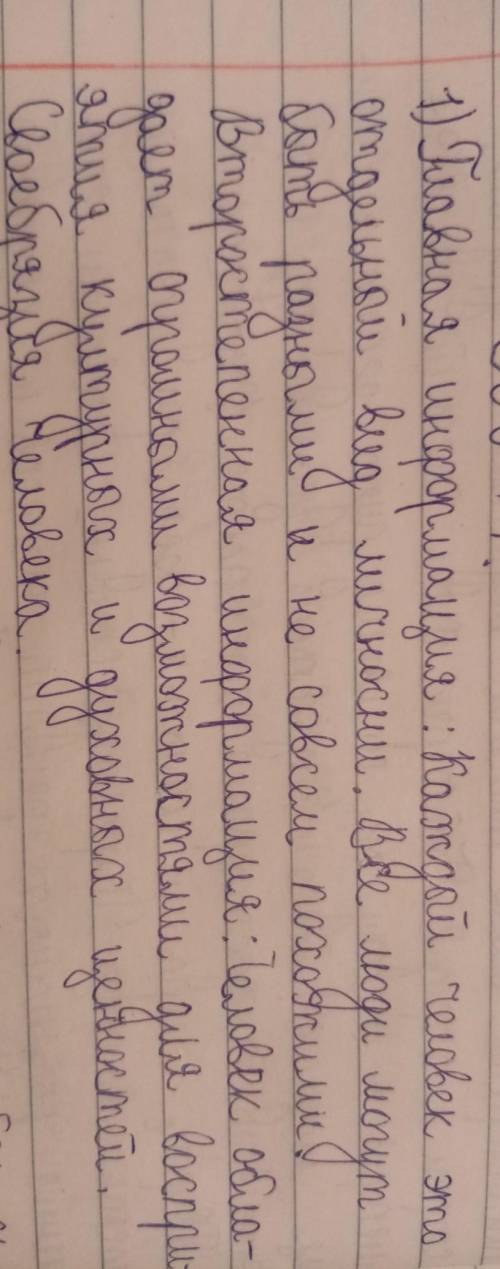 1) Главная информация: Каждой человек это
отдельный вид личносни. Все люди могут
быть разными и не совсем похожими!
Второстепенная информация: Человек обла-
дает огромными возможностями для воспри-
ятия културных и духовных ценностей.
Своебразия Человека.